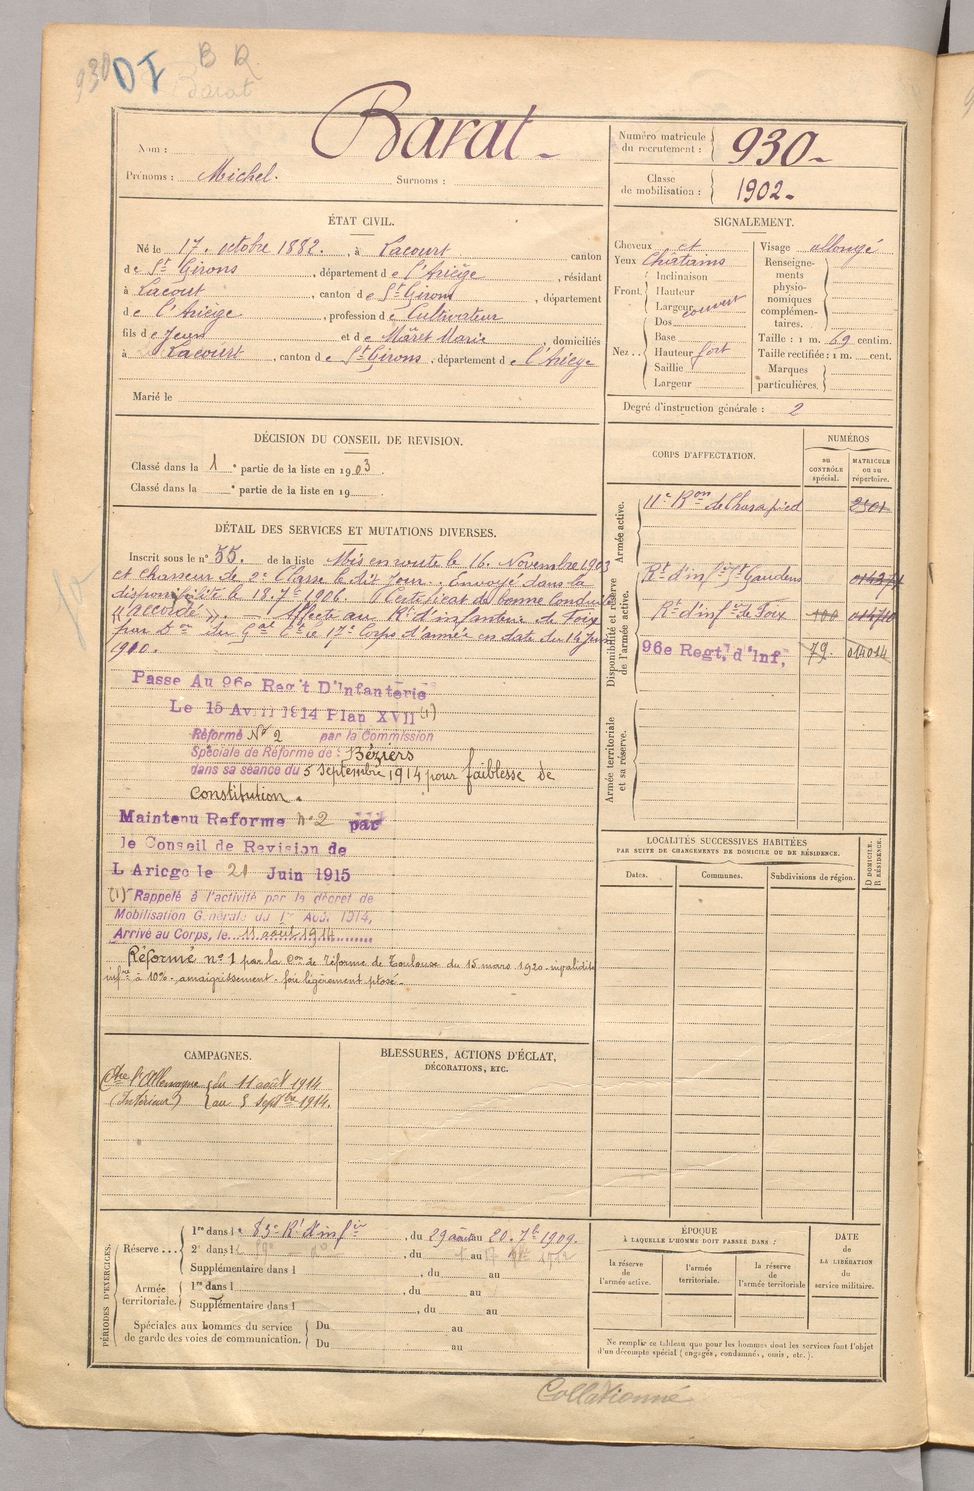 930 DI B R
Barat
Nom : Barat
Prénoms : Michel. Surnoms :
Numéro matricule du recrutement : 930
Classe de mobilisation : 1902
ÉTAT CIVIL.
Né le 17 octobre 1882. , à Lacourt canton
de St Girons , département de l'Ariège , résidant
à Lacourt , canton de St Girons , département
de l'Ariège , profession de Cultivateur
fils de Jean et de Maret Marie , domiciliés
à Lacourt , canton de St Girons , département de l'Ariège
Marié le
SIGNALEMENT.
Cheveux et
Yeux Chatains
Front. Inclinaison
Hauteur
Largeur couvert
Nez . . Dos
Base
Hauteur fort
Saillie
Largeur
Visage allongé
Renseignements physionomiques complémentaires.
Taille : 1 m. 69 centim.
Taille rectifiée : 1 m. cent.
Marques particulières.
Degré d'instruction générale : 2
DÉCISION DU CONSEIL DE REVISION.
Classé dans la 1 e partie de la liste en 1903.
Classé dans la e partie de la liste en 19
DÉTAIL DES SERVICES ET MUTATIONS DIVERSES.
Inscrit sous le n° 55. de la liste Mis en route le 16. Novembre 1903
et chasseur de 2e Classe le dit jour. Envoyé dans la
disponibilité le 18. 7bre 1906. Certificat de bonne conduite
"accordé". — Affecté au Rt d'infanterie de Foix
par Don du Gal Ct le 17e Corps d'armée en date du 14 juin
1910.
Passe Au 96e Reg't D'Infanterie
Le 15 Avril 1914 Plan XVII (1)
Réformé N° 2 par la Commission
Spéciale de Réforme de : Béziers
dans sa séance du 5 septembre 1914 pour faiblesse de
constitution.
Maintenu Reforme n° 2 par
le Conseil de Revision de
L Ariege le 21 Juin 1915
(1) Rappelé à l'activité par le décret de
Mobilisation Générale du 1er Aout 1914,
Arrivé au Corps, le 11 août 1914
Réformé n° 1 par la Con de réforme de Toulouse du 15 mars 1920 - invalidité
infre à 10% - amaigrissement - foie légèrement ptosé -
CORPS D'AFFECTATION.
NUMÉROS
au CONTRÔLE spécial.
MATRICULE ou au répertoire.
Armée active.
11e Bon de Chas. à pied 2301
Disponibilité et réserve de l'armée active.
Rt d'inf. de St Gaudens
Rt d'infie de Foix
96e Regt, d'Inf, 79. 014014
Armée territoriale et sa réserve.
LOCALITÉS SUCCESSIVES HABITÉES
PAR SUITE DE CHANGEMENTS DE DOMICILE OU DE RÉSIDENCE.
Dates. Communes. Subdivisions de région. D DOMICILE. R RÉSIDENCE.
CAMPAGNES.
Ctre l'Allemagne du 11 août 1914
(Intérieur) au 5 septbre 1914.
BLESSURES, ACTIONS D'ÉCLAT,
DÉCORATIONS, ETC.
PÉRIODES D'EXERCICES.
Réserve . . . 1re dans le 83e Rt d'infie , du 29 août au 20. 7bre 1909.
2e dans l , du au
Supplémentaire dans l , du au
Armée territoriale. 1re dans l , du au
Supplémentaire dans l , du au
Spéciales aux hommes du service de garde des voies de communication. Du au
Du au
ÉPOQUE
À LAQUELLE L'HOMME DOIT PASSER DANS :
la réserve de l'armée active.
l'armée territoriale.
la réserve de l'armée territoriale
DATE DE LA LIBÉRATION du service militaire.
Ne remplir ce tableau que pour les hommes dont les services font l'objet
d'un décompte spécial (engagés, condamnés, omis, etc.).
Collationné